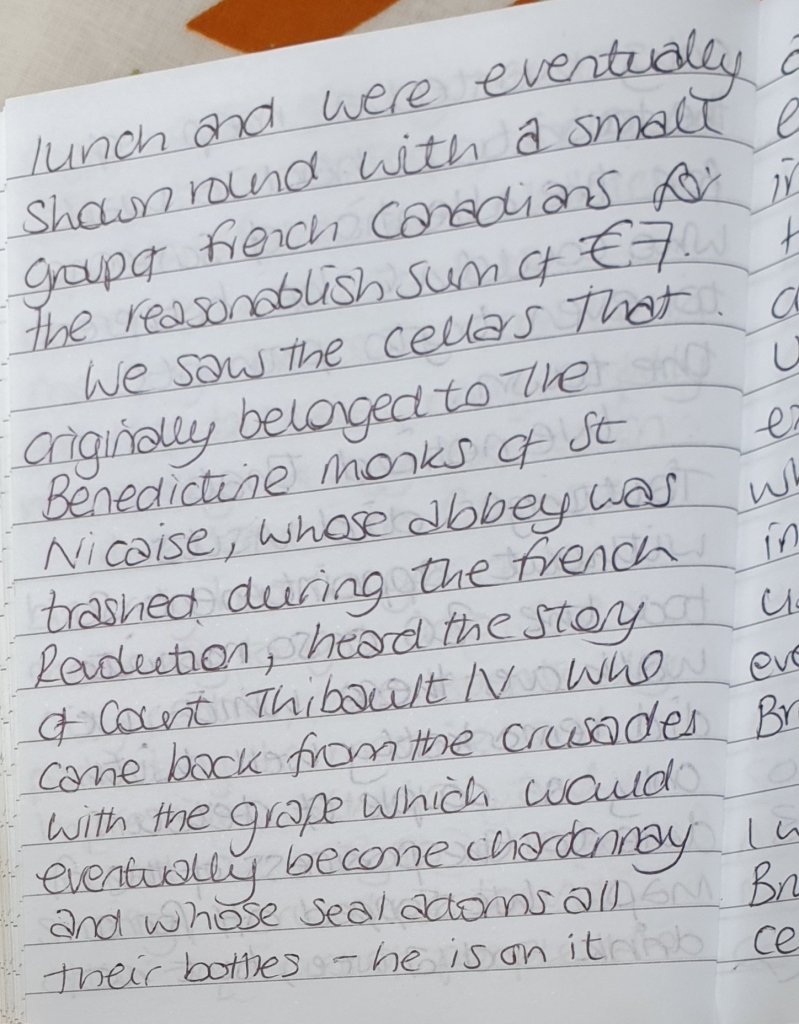 lunch and were eventually
shown round with a small
group of french Canadians for
the reasonablish sum of €7.
We saw the cellars that
originally belonged to the
Benedictine monks of St
Nicaise, whose abbey was
trashed during the french
Revolution, heard the story
of Count Thibault IV who
came back from the crusades
with the grape which would
eventually become chardonnay
and whose seal adorns all
their bottles - he is on it